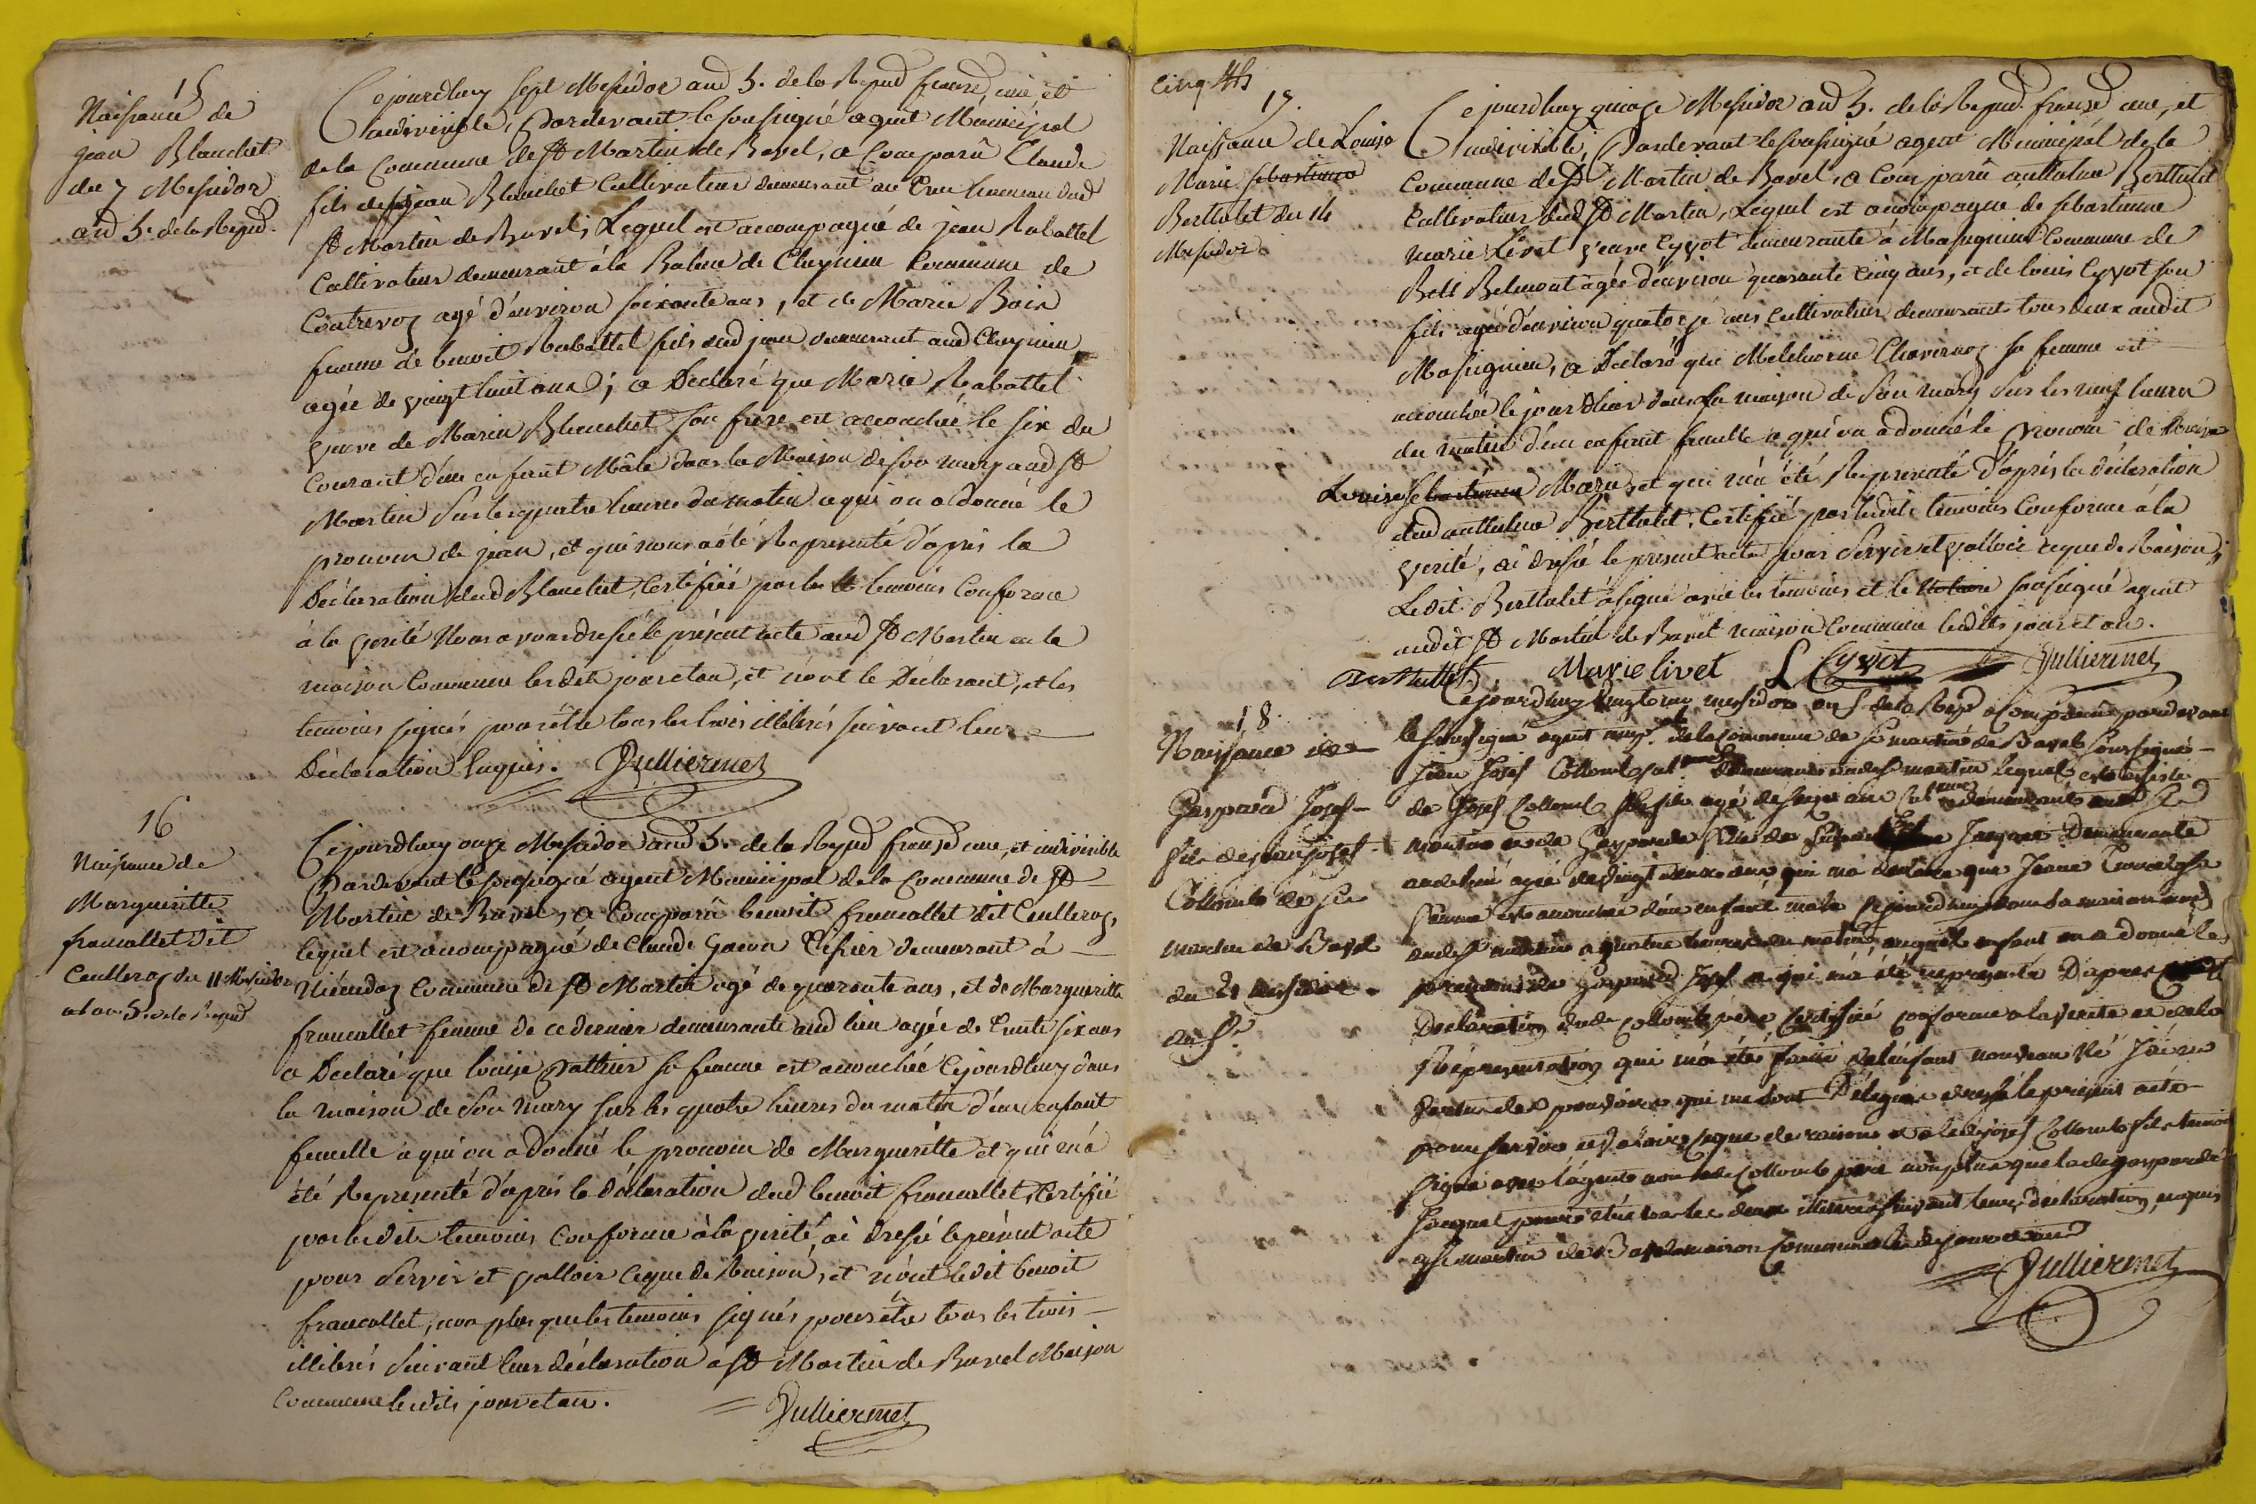 15
Naissance de
jean Blanchet
du 7 Messidor
and 5. de la Repud.
Cejourdhuy sept Messidor and 5. de la Repud francd, une et
indivisible, Pardevant le soussigné agent Municipal
de la Commune de St Martin de Bavel, a Comparû Claude
fils de jean Blanchet Cultivateur demeurant au hameau dud
St Martin de Bavel, Lequel est accompagné de jean Rabattel
Cultivateur demeurant à la Balme de Cheynieu Commune de
Contrevoz agé d'environ soixante ans, et de Marie Boin
femme de benoit Rabattel fils dud jean demeurant aud Cheynieu
agée de vingt huit ans; a Declaré que Marie Rabattel
veuve de Marin Blanchet son frere est accouchée le six du
Courant d'un enfant Mâle dans la Maison de son mary aud St
Martin sur les quatre heures du matin a qui on a donné le
pronom de jean, et qui nous a été Representé d'apris la
Déclaration dud Blanchet, Certifiée par les temoins Conforme
à la verité Nous avons dressé le présent acte aud St Martin en la
maison Commune lesdits jour et an, et n'ont le Déclarant, et les
temoins signés pour être tous les trois illiterés suivant leur
Déclaration Enquis. Julliermet
16
Naissance de
Margueritte
francallet dit
Ceulleroz du 11 Messidor
and an 5. de la Repud
Cejourdhuy onze Messidor and 5. de la Repud francsd une, et indivisible
Pardevant le soussigné agent Municipal de la Commune de St
Martin de Bavel, a Comparû benoit francallet dit Ceulleroz,
lequel est acompagné de Claude demeurant à
Commune de St Martin agé de quarante ans, et de Margueritte
francallet femme de ce dernier demeurante aud lieu agée de Trente six ans
a Declaré que louise Pathier sa femme est accouchée Cejourdhuy dans
la maison de son mary sur les quatre heures du matin d'un enfant
femelle à qui on a donné le pronom de Margueritte et qui m'a
été Representé d'apris la déclaration dud benoit francallet, Certifié
par lesdits temoins Conforme à la verité, ai dressé le présent acte
pour servir et valloir ceque de Raison, et n'ont ledit benoit
francallet, non plus que les temoins signés pour être tous les trois
illiterés suivant leur déclaration à St Martin de Bavel Maison
Commune lesdits jour et an. Julliermet
Cinq
17.
Naissance de Louise
Marie Sebastienne
Berthulet du 14
Messidor
Cejourdhuy quinze Messidor and 5. de la Repud. francsd une, et
indivisible, Pardevant le soussigné agent Municipal de la
Commune de St Martin de Bavel, a Comparû anthelme Berthulet
Cultivateur dud St Martin, Lequel est acompagné de sebastienne
marie Livet veuve Cyvot demeurante à Massignieu Commune de
Bell Belmont agée d'environ quarante Cinq ans, et de louis Cyvot son
fils agé d'environ quatorze ans Cultivateur demeurants tous deux audit
Massignieu, a Déclaré que Melchiorne Chavernoz sa femme est
accouchée le jour d'hier dans la maison de son mary sur les neuf heures
du matin d'un enfant femelle a qui on a donné le pronom de Louise
Louise Sebastienne Marie, et qui m'a été Representé d'apris la déclaration
dud anthelme Berthulet, Certifié par lesdits temoins Conforme à la
verité, ai dressé le présent acte pour servir et valloir ceque de Raison,
Ledit Berthulet à signé avec les temoins et le Notaire soussigné agent
audit St Martin de Bavel maison Commune lesdits jour et an.
aBerthullet Marie livet L Cyvot Julliermet
18.
Naissance de
Gaspard Josef
fils de jean Josef
Collomb de St
martin de Bavel
du 21 messidor
an 5e
Cejourdhuy vingt un messidor an 5 de la Repd a Comparu pardevant
le soussigné agent de la Commune de St martin de Bavel soussigné
Jean Josef Collomb demeurant aud St martin lequel est assisté
de Josef Collomb fils agé de seize ans demeurant aud St
martin et de Gasparde fille de Jacquet Demeurante
agée de vingt deux ans qui m'a declaré que Jeane
femme est acouchée d'un enfant male cejourdhuy dans sa maison
aud St martin a quatre heures du matin auquel enfant on a donné le
prenom de Gaspard Josef et qui m'a été representé D'apres
Declaration dud Collomb père Certifié conforme a la verité et de la
Representation qui m'a été faite de l'enfant nouveau né J'ai en
vertu des pouvoirs qui me sont Délégués dressé le present acte
pour servir et valoir ceque de raison et a led Josef Collomb fils temoin
signé avec l'agent non led Collomb père non plus que lade gasparde
Jacquet pour être tous les deux illiterés suivant leur déclaration enquis
a St martin de Bavel maison Commune les d jour et an
Julliermet